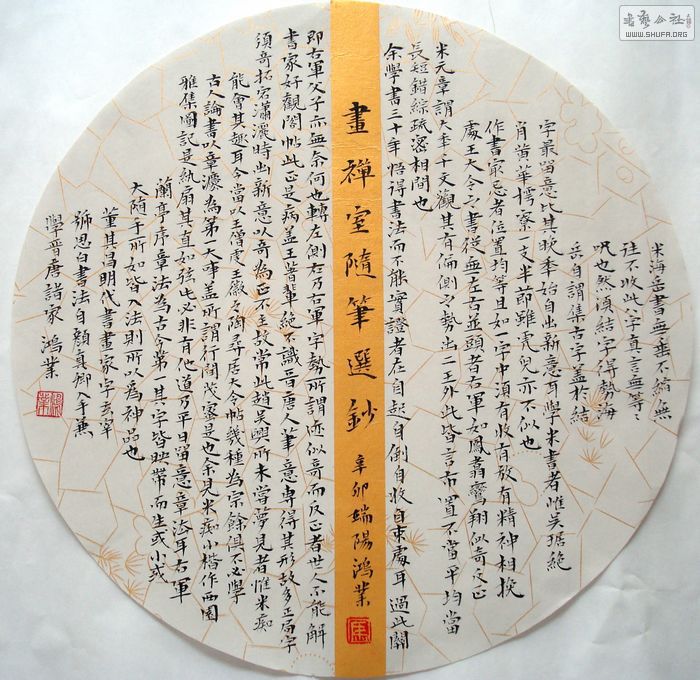 米海岳書無垂不縮無
往不收此八字真言無等〻
呪也然須結字得勢海
岳自謂集古字蓋於結
字最留意比其晚季始自出新意耳學米書者惟吴琚絶
肖黄華樗寮一支半節雖虎兒亦不似也
作書最忌者位置均等且如一字中須有收有放有精神相挽
處王大令之書從無左右並頭者右軍如鳳翥鸞翔似奇反正
米元章謂大年千文觀其有偏側之勢出二王外此皆言布置不當平均當
長短錯綜疏密相間也
余學書三十年悟得書法而不能實證者在自起自倒自收自束處耳過此關
畫禪室隨筆選鈔 辛卯端陽鴻業
即右軍父子亦無奈何也轉左側右乃右軍字勢所謂迹似奇而反正者世人不能解
書家好觀閣帖此正是病蓋王著輩絶不識晉唐人筆意專得其形故多正局字
須奇拓宕瀟灑時出新意以奇為正不主故常此趙吴興所未嘗夢見者惟米痴
能會其趣耳今當以王僧虔王徽之陶尋居大令帖幾種為宗餘俱不必學
古人論書以章灋為第一大事蓋所謂行間茂密是也余見米痴小楷作西園
雅集圖記是紈扇其直如弦此必非有他道乃平日留意章法耳右軍
蘭亭序章法為古今第一其字皆映帶而生或小或
大随手所如皆入法則所以為神品也
董其昌明代書畫家字玄宰
號思白書法自顔真卿入手兼
學晉唐諸家 鴻業
書藝公社
WWW.SHUFA.ORG